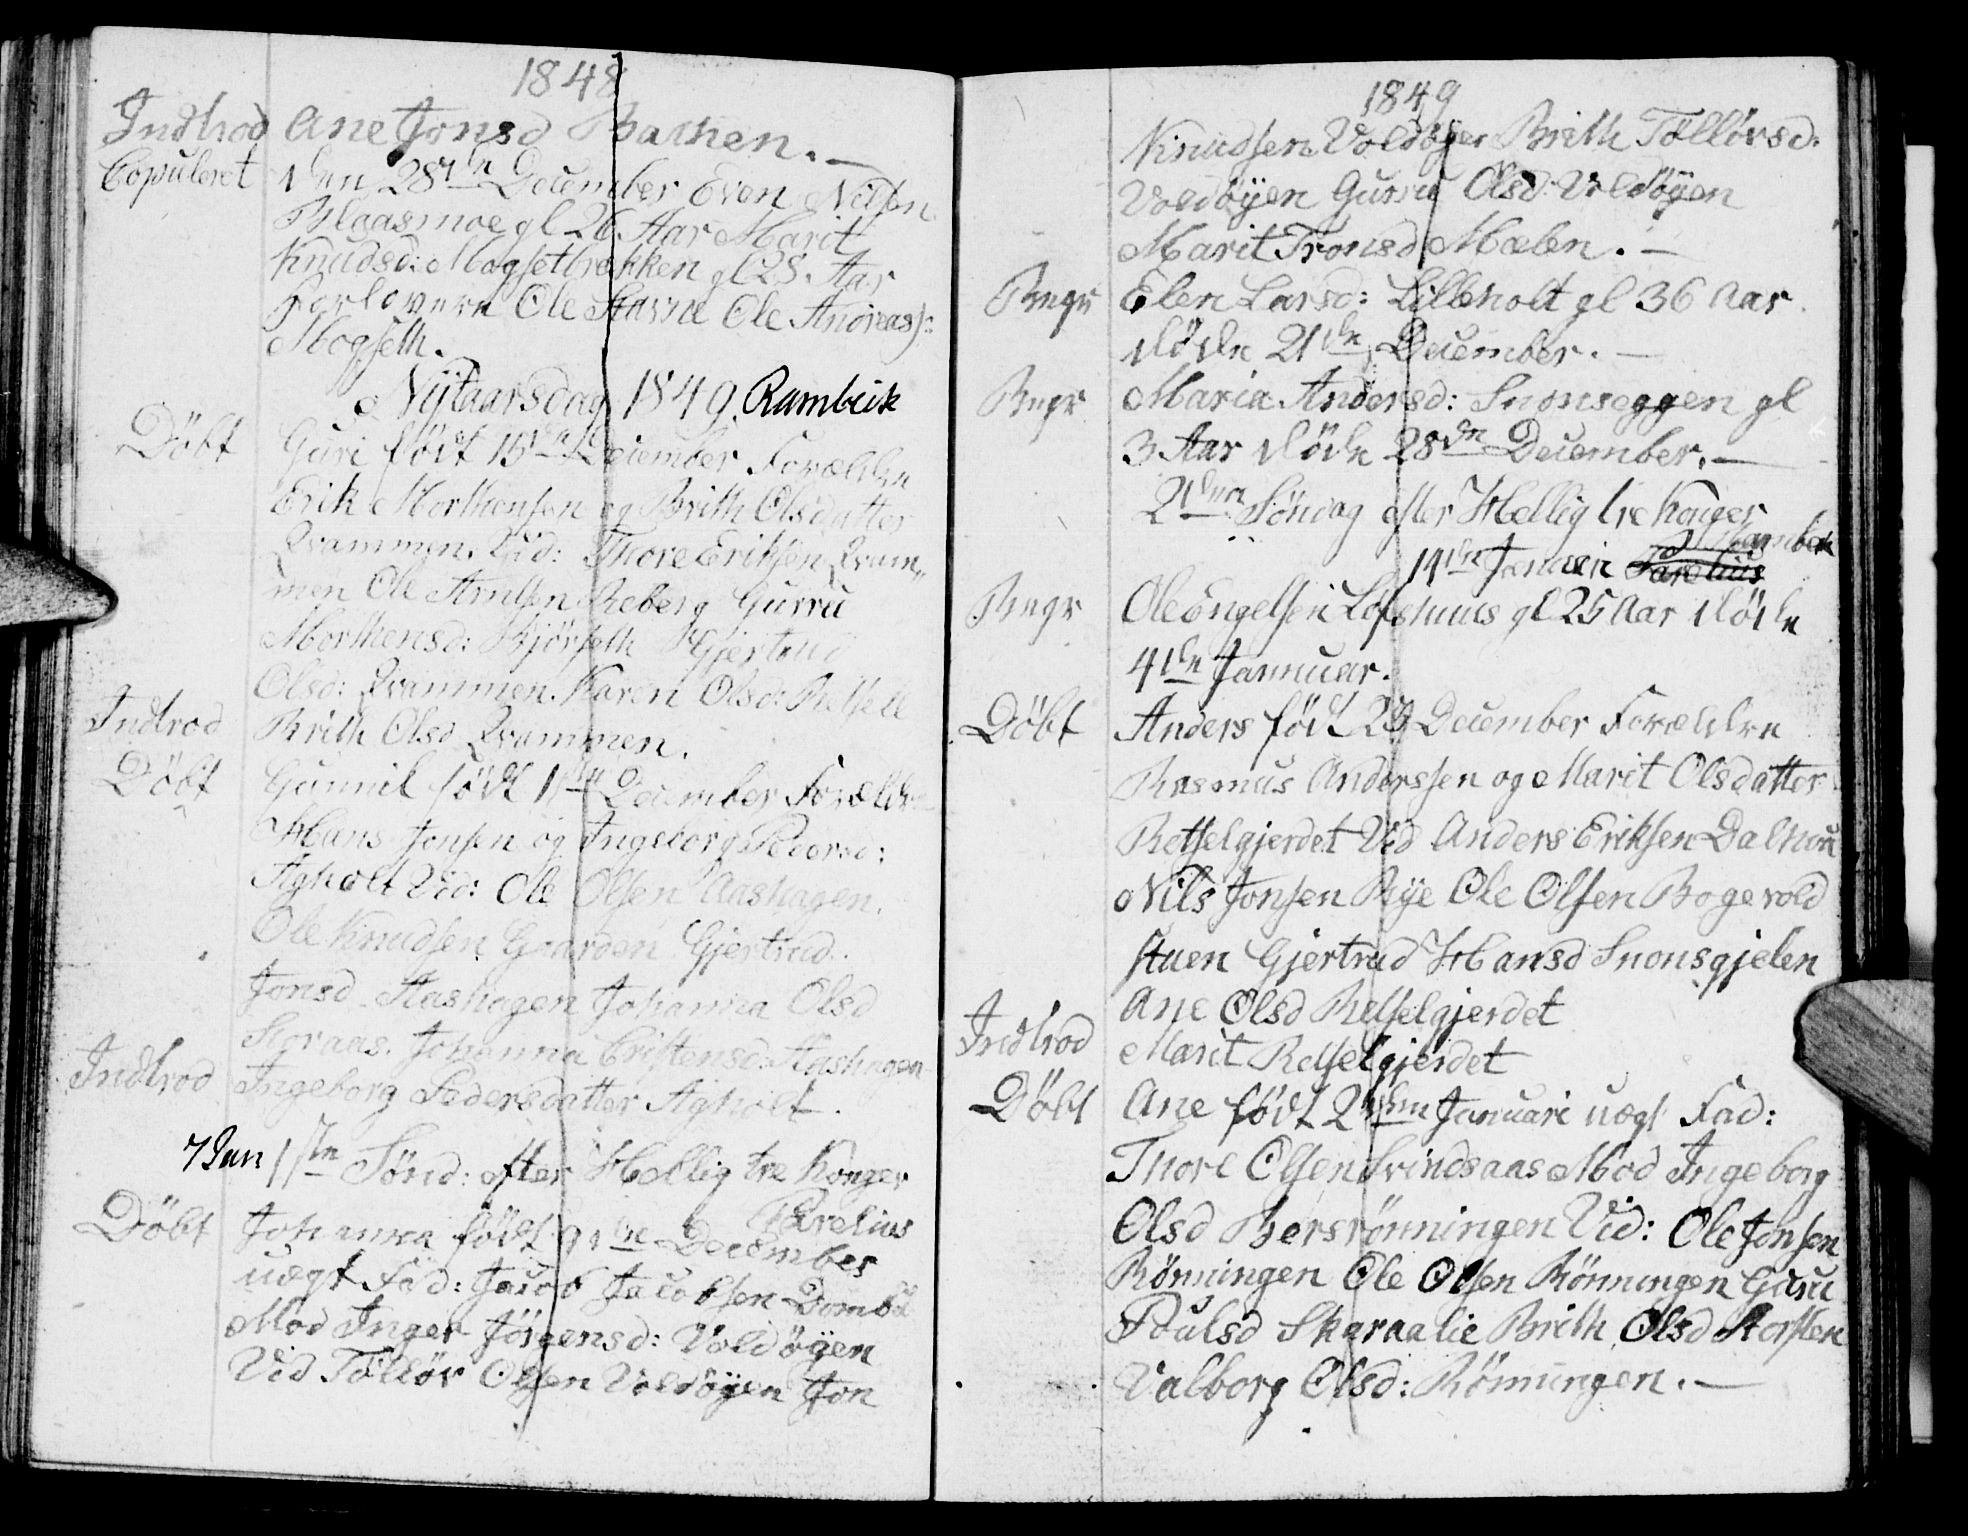 1848
Indtrod Ane Jonsd Bakken. —
Copuleret den 28de December Even Nilsen
Blaasmoe gl 26 Aar Marit
Knudsd: Mogsetbrekken gl 28. Aar
Forlovere Ole Stavne Ole Andreass:
Mogseth.
Nÿtaarsdag 1849. Rambeik
Döbt Guri födt 15de December Forældre
Erik Morthensen og Brith Olsdatter
Qvammen. Vid: Thore Eriksen Qvam„
men Ole Arntsen Reberg Gurru
Morthensd: Bjørseth Gjertrud
Olsd: Qvammen. Karen Olsd: Retsell
Indtrod Brith Olsd Qvammen.
Döbt Gunnil födt 1ste December Forældre
Hans Jonsen og Ingeborg Pedersd:
Agholt Vid: Ole Olsen Aashagen.
Ole Knudsen Gaarden Gjertrud
Jonsd Aashagen Johanna Olsd
Storaas. Johanna Cristensd: Aashagen
Indtrod Ingeborg Pedersdatter Agholt.
7 Jan 1ste Sönd: efter Hellig tre Konger
Parelius
Döbt Johanna födt December
uægt Fad: Jacob Jacobsen Dombå
Mod Inger Jörgensd: Voldöÿen
Vid Töllöv Olsen Voldöÿen Jon
1849
Knudsen Voldöÿen Brith Töllövsd:
Voldöÿen Gurru Olsd: Voldöÿen
Marit Tronsd Mælen. —
Begr Elen Larsd: Lilleholt gl 36 Aar.
döde 21de December. —
Begr Maria Andersd: Snonseggen gl
3 Aar döde 28de December. —
2den Söndag efter Hellig tre Konger
Rambek
14de Januar Parelius
Begr Ole Engelsen Löfshuus gl 25 Aar döde
4de Januar.
Döbt Anders födt 23 December Forældre
Rasmus Anderssen og Marit Olsdatter
Retselgjerdet Vid Anders Eriksen Dalhou
Nils Jonsen Rÿe Ole Olsen Bogevold
stuen Gjertrud Hansd Snonsgjelen
Ane Olsd Retselgjerdet
Indtrod Marit Retselgjerdet
Döbt Ane födt Januari uægt Fad:
Thore Olsen Svindsaas Mod Ingeborg
Olsd Bersrönningen Vid: Ole Jonsen
Rönningen Ole Olsen Rönningen Guru
Poulsd Skaraalie Brith Olsd Storsten
Valborg Olsd: Rönningen. —